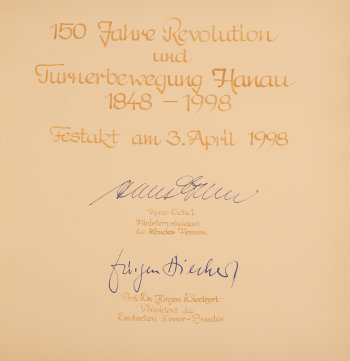 150 Jahre Revolution
und
Turnerbewegung Hanau
1848 - 1998
Festakt am 3. April 1998
Hans Eichel
Hans Eichel
Ministerpräsident
des Landes Hessen
Jürgen Dieckert
Prof. Dr. Jürgen Dieckert
Präsident des
Deutschen Turner-Bundes